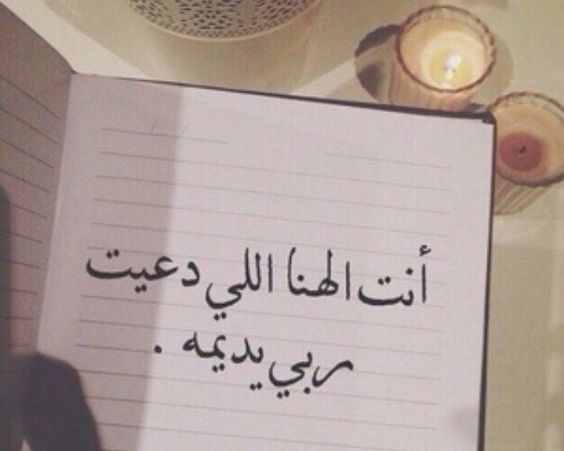 أنت الهنا اللي دعيت
ربي يديمه .